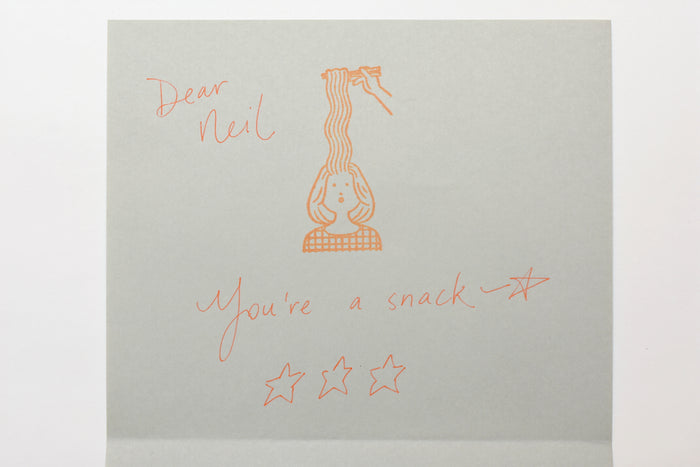 Dear
Neil
You're a snack